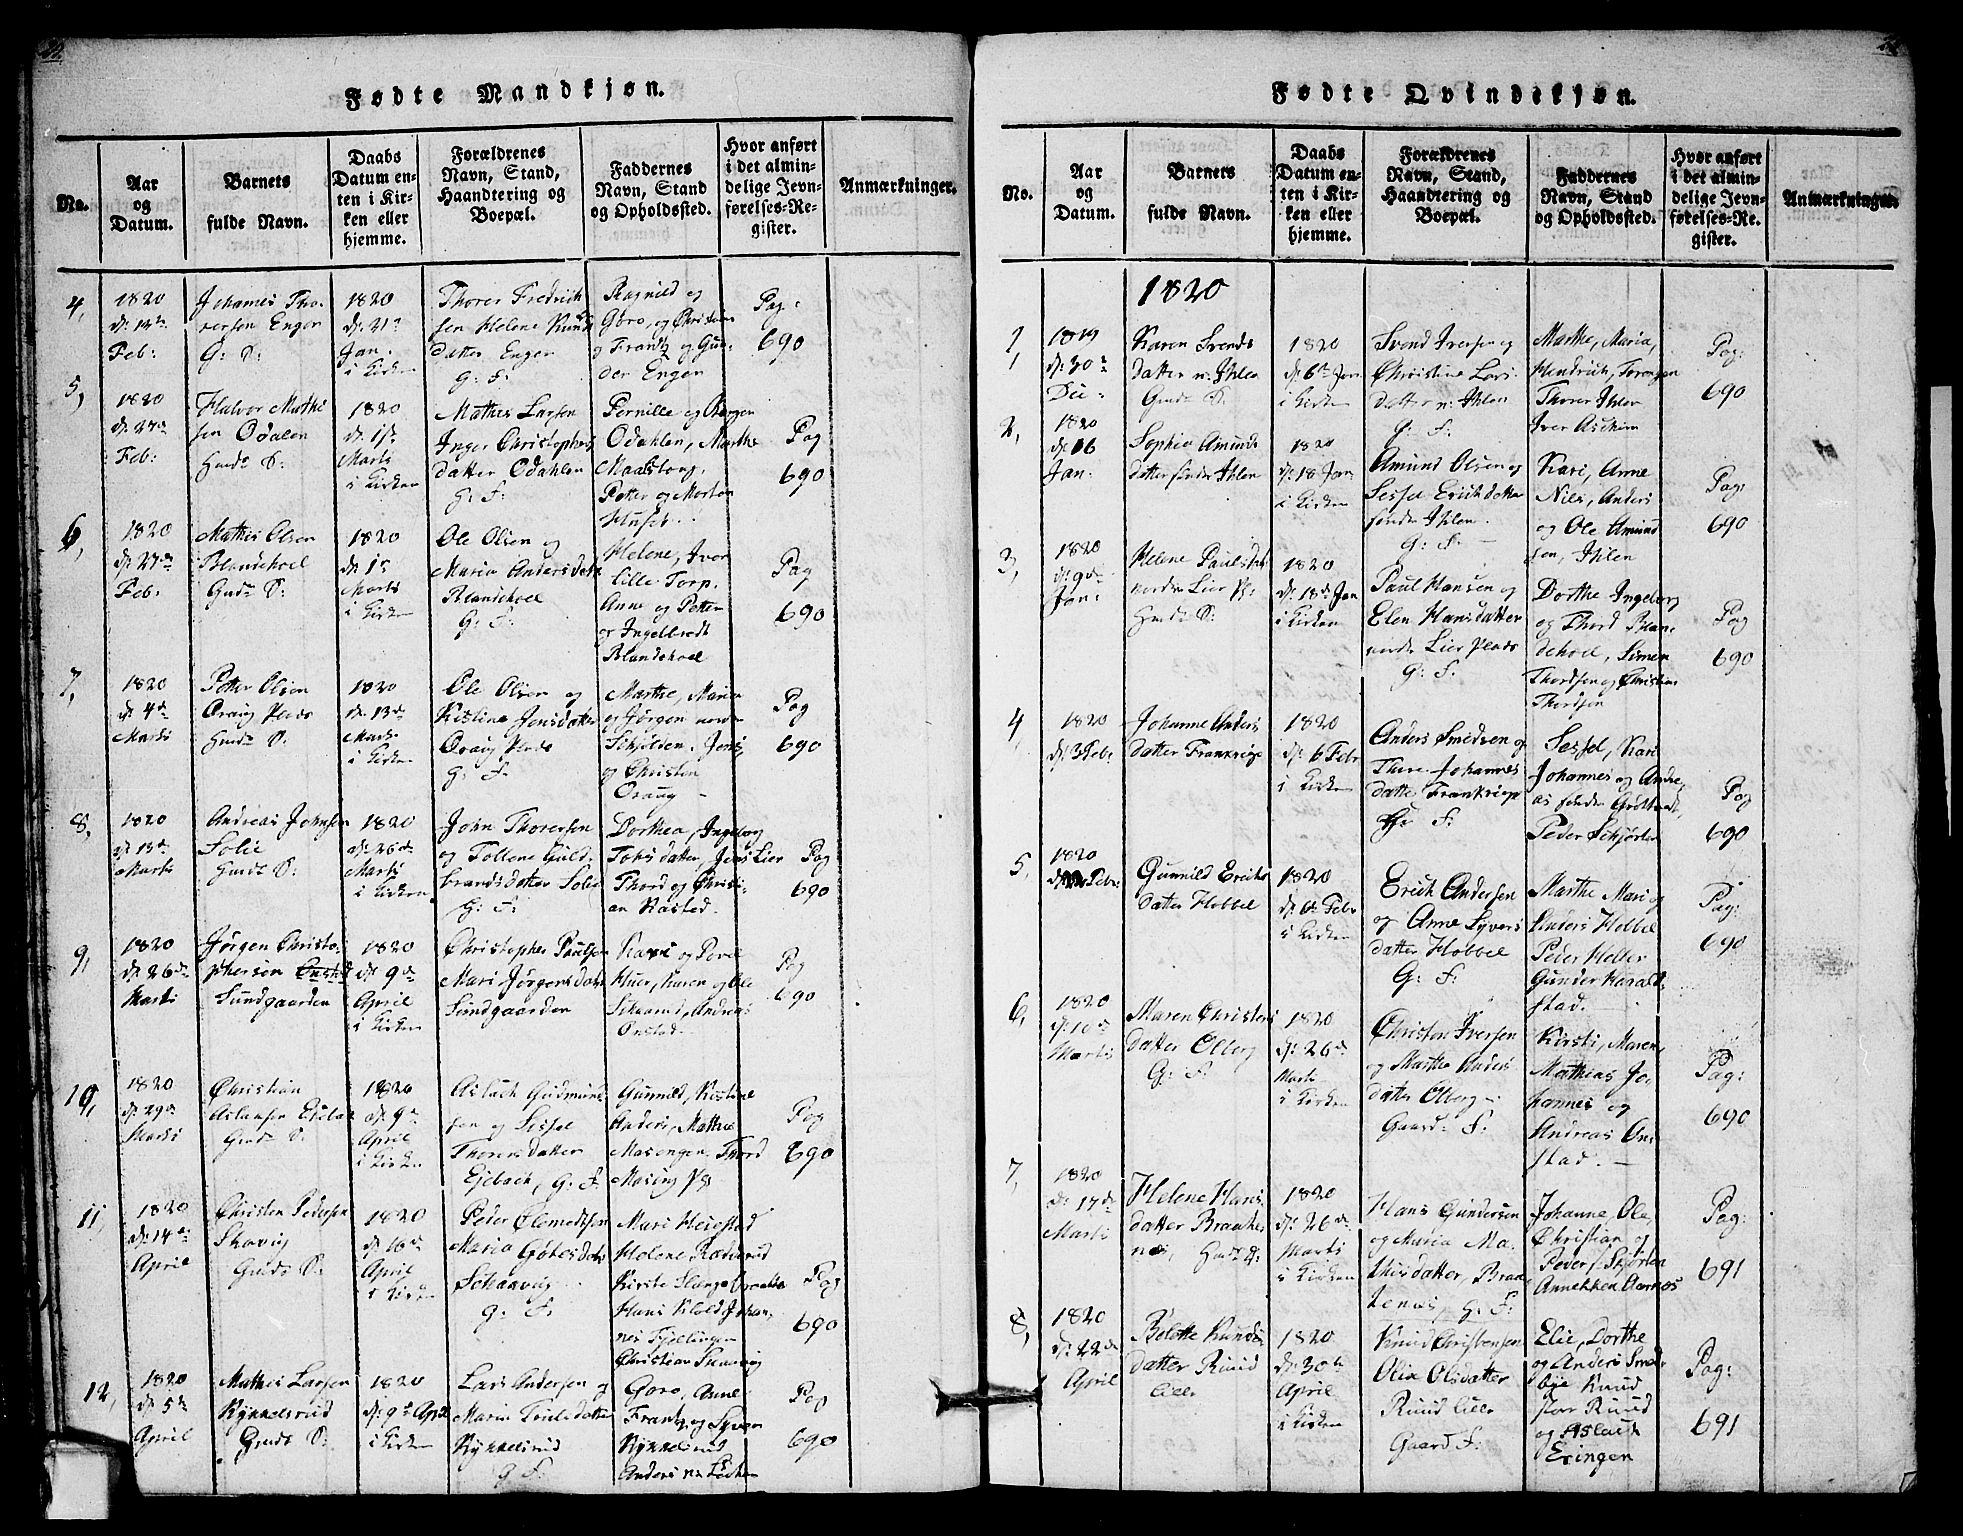 Fødte Mandkjøn.
No.
Aar
og
Datum.
Barnets
fulde Navn.
Daabs
Datum en-
ten i Kir-
ken eller
hjemme.
Forældrenes
Navn, Stand,
Haandtering og
Boepæl.
Faddernes
Navn, Stand
og Opholdssted.
Hvor anført
i det almin-
delige Jevn-
førelses-Re-
gister.
Anmærkninger.
4,
1820
Feb:
Johannes Tho-
rersen Enger
G: S:
1820
Jan.
i Kirken
Thorer Fredrich
sen Helene Knuds
datter Enger
G: F:
Ragnild og
Goro, og Christian
og Frantz og Gun-
der Enger
Pag:
690
5,
1820
Feb:
Halvor Mathi
sen Odalen
Gude S:
1820
Marts
i Kirken
Mathis Larsen
Inger Christophers
datter Odahlen
G: F:
Pernille og
Odahlen, Marthe
Petter og Morten
Pag
690
6,
1820
Feb:
Mathis Olsen
Blandehoel
Gude S:
1820
Marts
i Kirken
Ole Olsen og
Maria Anders datter
Blandehoel
G: F:
Helene, Iver
Lille Torp,
Anne og Petter
og Ingelbredt
Blandehoel
Pag
690
7,
1820
d: 4de
Marts
Petter Olsen
Oraug Plads
Gude S:
1820
d: 13de
Marts
i Kirken
Ole Olsen og
Kistine Jensdatter
Oraug Plads
G: F:
Marthe, Maria
og Jørgen
og Christen
Oraug
Pag
690
8,
1820
d: 13de
Marts
Andreas Johnsen
Solie
Gude S:
1820
d: 26de
Marts
i Kirken
John Thorersen
og Tollene Guld
brands datter Solie
G: F:
Dorthea, Ingeborg
datter, Jens Lier
Thord og Christi-
an Rasted.
Pag
690
9,
1820
d: 26de
Marts
Jørgen Christo-
phersøn
Sundgaarden
1820
d: 9de
April
i Kirken
Christopher Paulsen
Mari Jørgensdatter
Sundgaarden
Huer, Karen og Ole
Andreas
Onstad
Pag
690
10,
1820
d: 29de
Marts
Christian
Gude S:
1820
d: 9de
April
i Kirken
Aslach Gudmund
sen og Sissel
Thorersdatter
Ejebach, G: F:
Gunnild, Kistine
Anders, Mathis
Masengen, Thord
Pag
690
11,
1820
d: 14de
April
Christen Pedersen
Skovig
Gude S:
1820
d: 16de
April
i Kirken
Peder Clemedtsen
Maria
G: F:
Mari
Helene
Christian Skovig
Pag
690
12,
1820
d: 5te
April
Mathis Larsen
Rykkelsrud
Gude S:
1820
d: 9de April
i Kirken
Lars Andersen og
Maria Truls datter
Rykkelsrud
G: F:
Goro, Anne
Frantz og Syver
Rykkelsrud
Pag
690
Fødte Qvindekjøn.
No.
Aar
og
Datum.
Barnets
fulde Navn.
Daabs
Datum en-
ten i Kir-
ken eller
hjemme.
Forældrenes
Navn, Stand,
Haandtering og
Boepæl.
Faddernes
Navn, Stand
og Opholdssted.
Hvor anført
i det almin-
delige Jevn-
førelses-Re-
gister.
Anmærkninger.
1820
1,
1819
d: 30te
Karen Svends
datter n: Ihlen
Gude D:
1820
d: 6te Jan
i Kirken
Svend Iversen og
Christine Lars
datter n: Ihlen
G: F:
Marthe, Maria,
Hendrich,
Thorer Ihlen
Iver Askim
Pag:
690
2,
1820
d: 16
Jan:
Sophia Amunds
datter søndre Ihlen
1820
d: 18 Jan
i Kirken
Amund Olsen og
Sessel Erichdatter
søndre Ihlen.
G: F:
Kari, Anne
Nils, Anders
og Ole Amund
sen, Ihlen
Pag:
690
3,
1820
d: 9de
Jan:
Helene Paulsdatter
nordre Lier Pl:
Gude D:
1820
d: 18de Jan
i Kirken
Paul Hansen og
Elen Hansdatter
nordre Lier Plads
G: F:
Dorthe Ingeborg
og Thord Blan-
dehoel, Simen
Thordsen og Christian
Thordsen
Pag
690
4,
1820
d: 3 Febr
Johanne Anders
datter Frankrige
1820
d: 6 Febr
i Kirken
Anders Smedsen og
Thore Johannes
datter Frankrige
G: F:
Sessel, Kari
Johannes og Andre-
as søndre
Peder Schjørten
Pag
690
5,
1820
Gunnild Erichs
datter Hobbel
1820
d: 6te Febr
i Kirken
Erich Andersen
og Anne Syvers
datter Hobbel
G: F:
Marthe Mari og
Anders Hobbel
Peder Heller
Gunder Harald-
stad.
Pag:
690
6,
1820
d: 10de
Marts
Maren Christens
datter Olberg
G: F:
1820
d: 26de
Marts
i Kirken
Christen Iversen
og Marthe Anders
datter Olberg
Gaard: F:
Kirsti, Maren,
Mathias Jo-
hannes og
Andreas On-
stad.
Pag:
690
7,
1820
d: 17de
Marts
Helene Hans
datter Braate
nes, Gude D:
1820
d: 26de
Marts
i Kirken
Hans Gundersen
og Maria Ma-
thisdatter, Braa
tenes, G: F:
Johanne, Ole,
Christian og
Peder s. Skjørten
Annekken Aarnes
Pag:
691
8,
1820
d: 22de
April
Bolette Knuds
datter Ruud
Lille
1820
d: 30te
April
i Kirken
Knud Christensen
Olia Olsdatter
Ruud Lille
Gaard F:
Elie, Dorthe
og Anders Smed-
bye Knud
stor Ruud
og Aslach
Eringen
Pag:
691